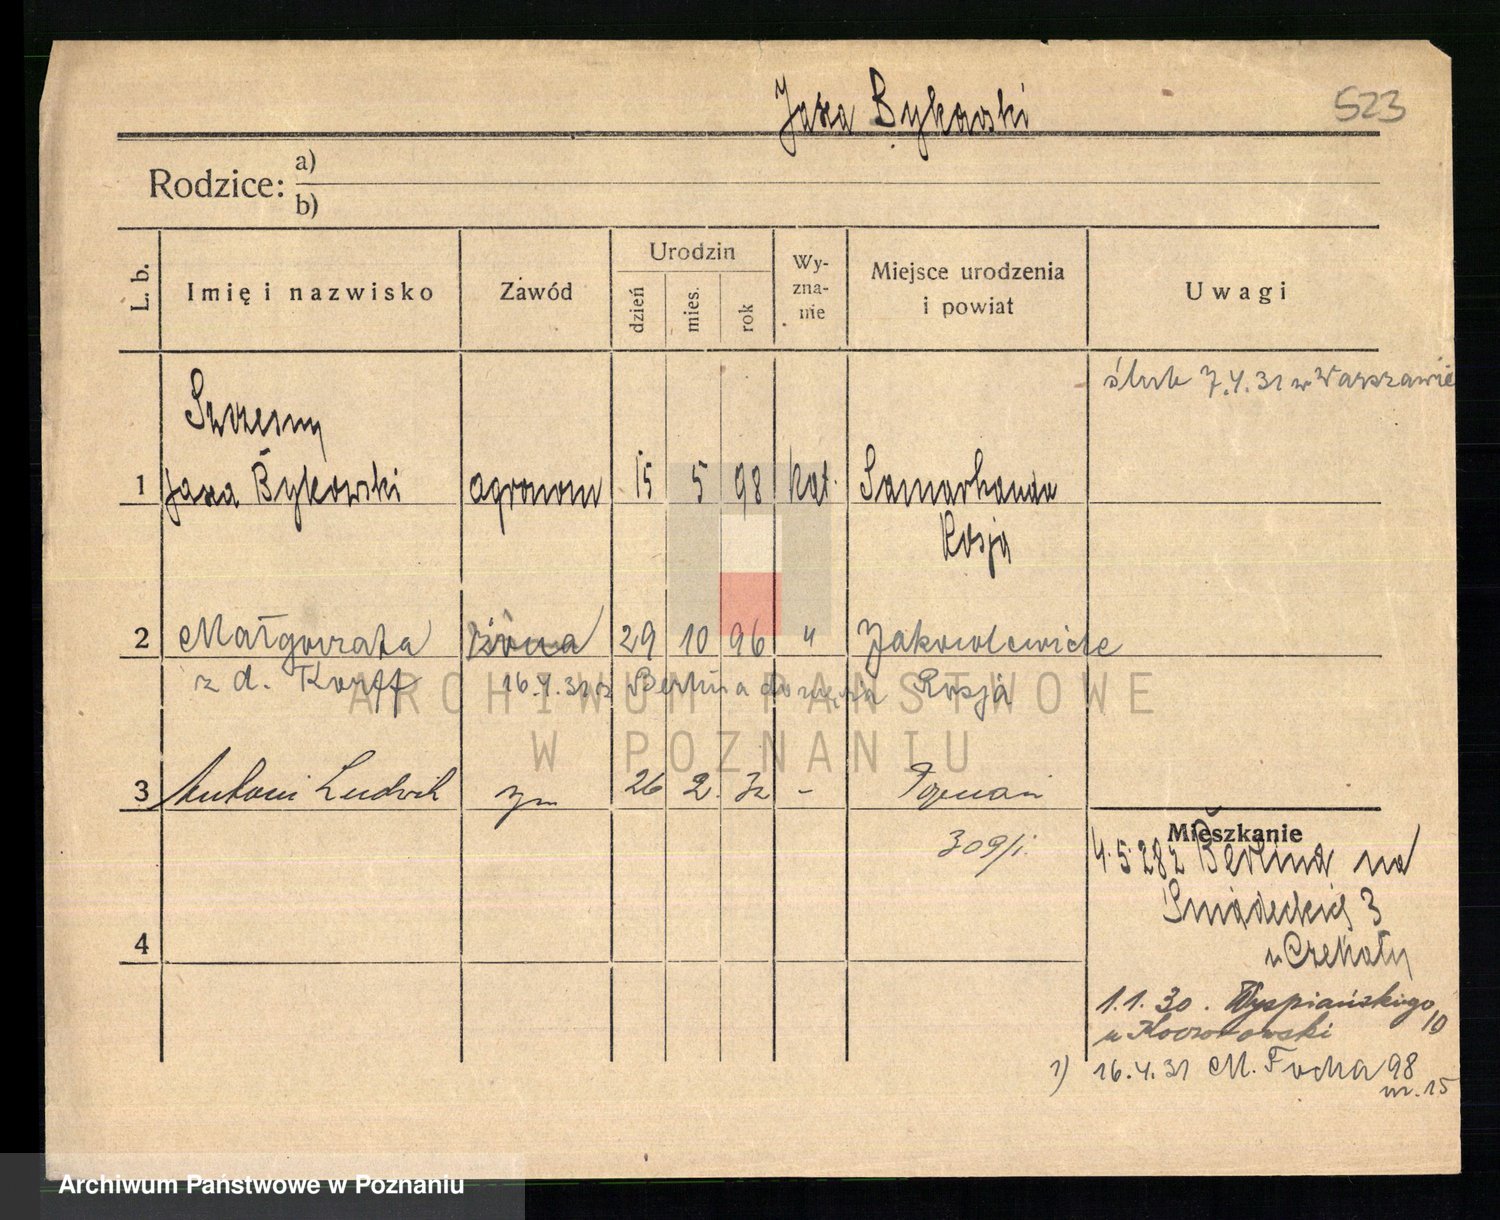 Jaxa Bykowski
523
Rodzice: a)
b)
L. b.
Imię i nazwisko
Zawód
Urodzin
dzień
mies.
rok
Wy-
zna-
nie
Miejsce urodzenia
i powiat
Uwagi
ślub 7.4.31 w Warszawie
Szczesny
1 Jaxa Bykowski agronom 15 5 98 kat. Samarkanda
Rosja
2 Małgorzata żona 29 10 96 " Jakowlewicze
z d. Korff 16.4.31 z Berlina do męża Rosja
ARCHIWUM PAŃSTWOWE
W POZNANIU
3 Antoni Ludwik 26 2. 32 - Poznań
309/i.
Mieszkanie
4.5.28 z Berlina na
Śniadeckich 3
u Czekały
4
1.1.30. Wyspiańskiego 10
u Koczorowski
1) 16.4.31 M. Focha 98
m. 15
Archiwum Państwowe w Poznaniu